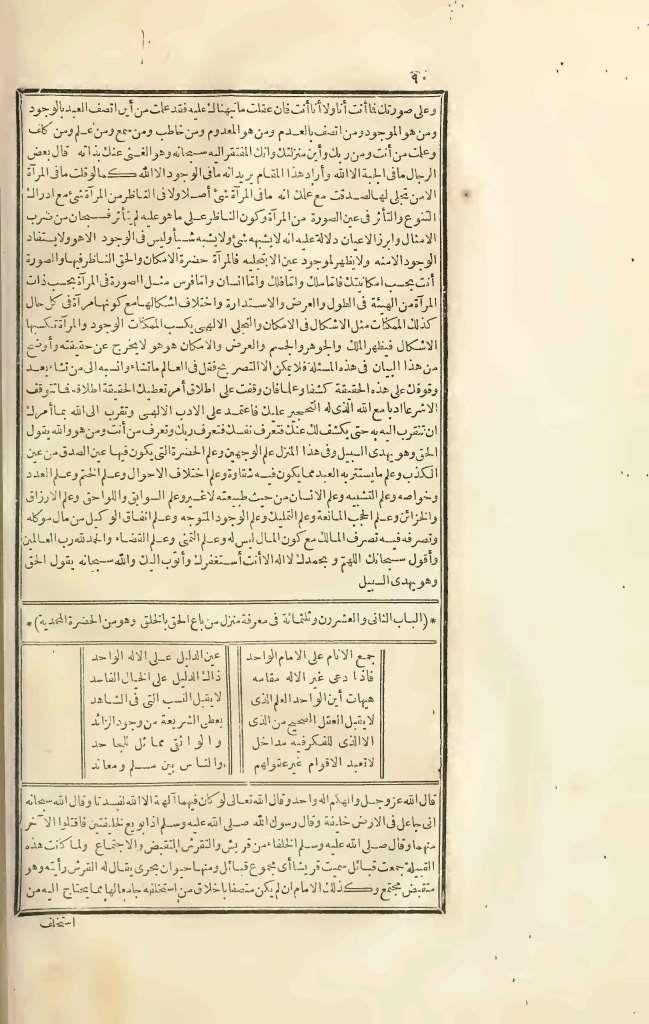 ٩٠
وعلى صورتك فما أنت أنا ولا أنا أنت فان عقلت ما نبهناك عليه فقد علمت من أين اتصف العبد بالوجود
ومن هو الموجود ومن اتصف بالعدم ومن هو المعدوم ومن خاطب ومن سمع ومن عمل ومن كلف
وعلمت من أنت ومن ربك وأين منزلتك وانك المفتقر اليه سبحانه وهو الغنى عنك بذاته قال بعض
الرجال ما فى الجبة الا الله وأراد هذا المقام يريد انه ما فى الوجود الا الله كما لو قلت ما فى المرآة
الا من تجلى لها لصدقت مع علمك انه ما فى المرآة شئ أصلا ولا فى الناظر من المرآة شئ مع ادراك
التنوع والتأثر فى عين الصورة من المرآة وكون الناظر على ما هو عليه لم يتأثر فسبحان من ضرب
الامثال وابرز الاعيان دلالة عليه انه لا يشبهه شئ ولا يشبه شيأ وليس فى الوجود الا هو ولا يستفاد
الوجود الا منه ولا يظهر لموجود عين الا بتجليه فالمرآة حضرة الامكان والحق الناظر فيها والصورة
أنت بحسب امكانيتك فاما ملك واما فلك واما انسان واما فرس مثل الصورة فى المرآة بحسب ذات
المرآة من الهيئة فى الطول والعرض والاستدارة واختلاف اشكالها مع كونها مرآة فى كل حال
كذلك الممكنات مثل الاشكال فى الامكان والتجلى الالهى يكسب الممكنات الوجود والمرآة تكسبها
الاشكال فيظهر الملك والجوهر والجسم والعرض والامكان هو هو لا يخرج عن حقيقته وأوضح
من هذا البيان فى هذه المسئلة فلا يمكن الا التصريح فقل فى العالم ما تشاء وانسبه الى من تشاء بعد
وقوفك على هذه الحقيقة كشفا وعلما فان وقفت على اطلاق أمر تعطيك الحقيقة اطلاقه فما تتوقف
الا شرعا ادبا مع الله الذى له التحجير عليك فاعتمد على الادب الالهى وتقرب الى الله بما أمرك
ان تتقرب اليه به حتى يكشف لك عنك فتعرف نفسك فتعرف ربك وتعرف من أنت ومن هو والله يقول
الحق وهو يهدى السبيل وفى هذا المنزل علم الوجهين وعلم الحضرة التى يكون فيها عين الصدق من عين
الكذب وعلم ما يستتر به العبد مما يكون فيه شقاوته وعلم اختلاف الاحوال وعلم الختم وعلم العدد
وخواصه وعلم التشبيه وعلم الانسان من حيث طبيعته لا غير وعلم السوابق واللواحق وعلم الارزاق
والخزائن وعلم الحجب المانعة وعلم التمليك وعلم الوجود المتوجه وعلم انفاق الوكيل من مال موكله
وتصرفه فيه تصرف المالك مع كون المال ليس له وعلم التمنى وعلم القضاء والحمد لله رب العالمين
وأقول سبحانك اللهم وبحمدك لا اله الا أنت أستغفرك وأتوب اليك والله سبحانه يقول الحق
وهو يهدى السبيل
*(الباب الثانى والعشرون وثلثمائة فى معرفة منزل من باع الحق بالخلق وهو من الحضرة المحمدية)*
جمع الانام على الامام الواحد عين الدليل على الاله الواحد
فاذا دعى غير الاله مقامه ذاك الدليل على الخيال الفاسد
هيهات أين الواحد العلم الذى لا يقبل النسب التى فى الشاهد
لا يقبل العقل الصحيح من الذى يعطى الشريعة من وجود الزائد
الا الذى للفكر فيه مداخل والواثقى مماثل للجاحد
لا تعبد الاقوام غير عقولهم والناس بين مسلم ومعاند
قال الله عز وجل والهكم اله واحد وقال الله تعالى لو كان فيهما آلهة الا الله لفسدتا وقال الله سبحانه
انى جاعل فى الارض خليفة وقال رسول الله صلى الله عليه وسلم اذا بويع لخليفتين فاقتلوا الآخر
منهما وقال صلى الله عليه وسلم الخلفاء من قريش والتقرش التقبض والاجتماع ولما كانت هذه
القبيلة جمعت قبائل سميت قريشا أى مجموع قبائل ومنها حيوان بحرى يقال له القرش رأيته وهو
متقبض مجتمع وكذلك الامام ان لم يكن متصفا باخلاق من استخلفه جامعا لها مما يحتاج اليه من
استخلف